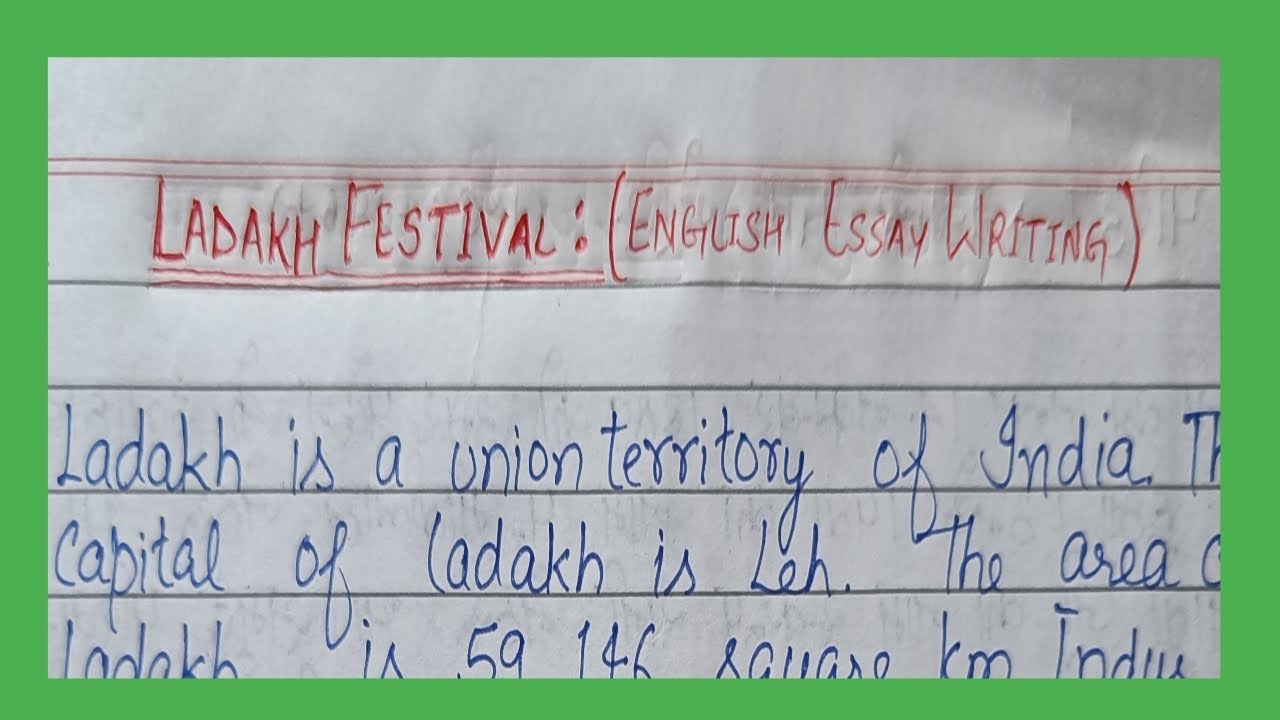 LADAKH FESTIVAL: (ENGLISH ESSAY WRITING)
Ladakh is a union territory of India. Th
Capital of Ladakh is Leh. The area o
Ladakh is 59 146 square km Indus